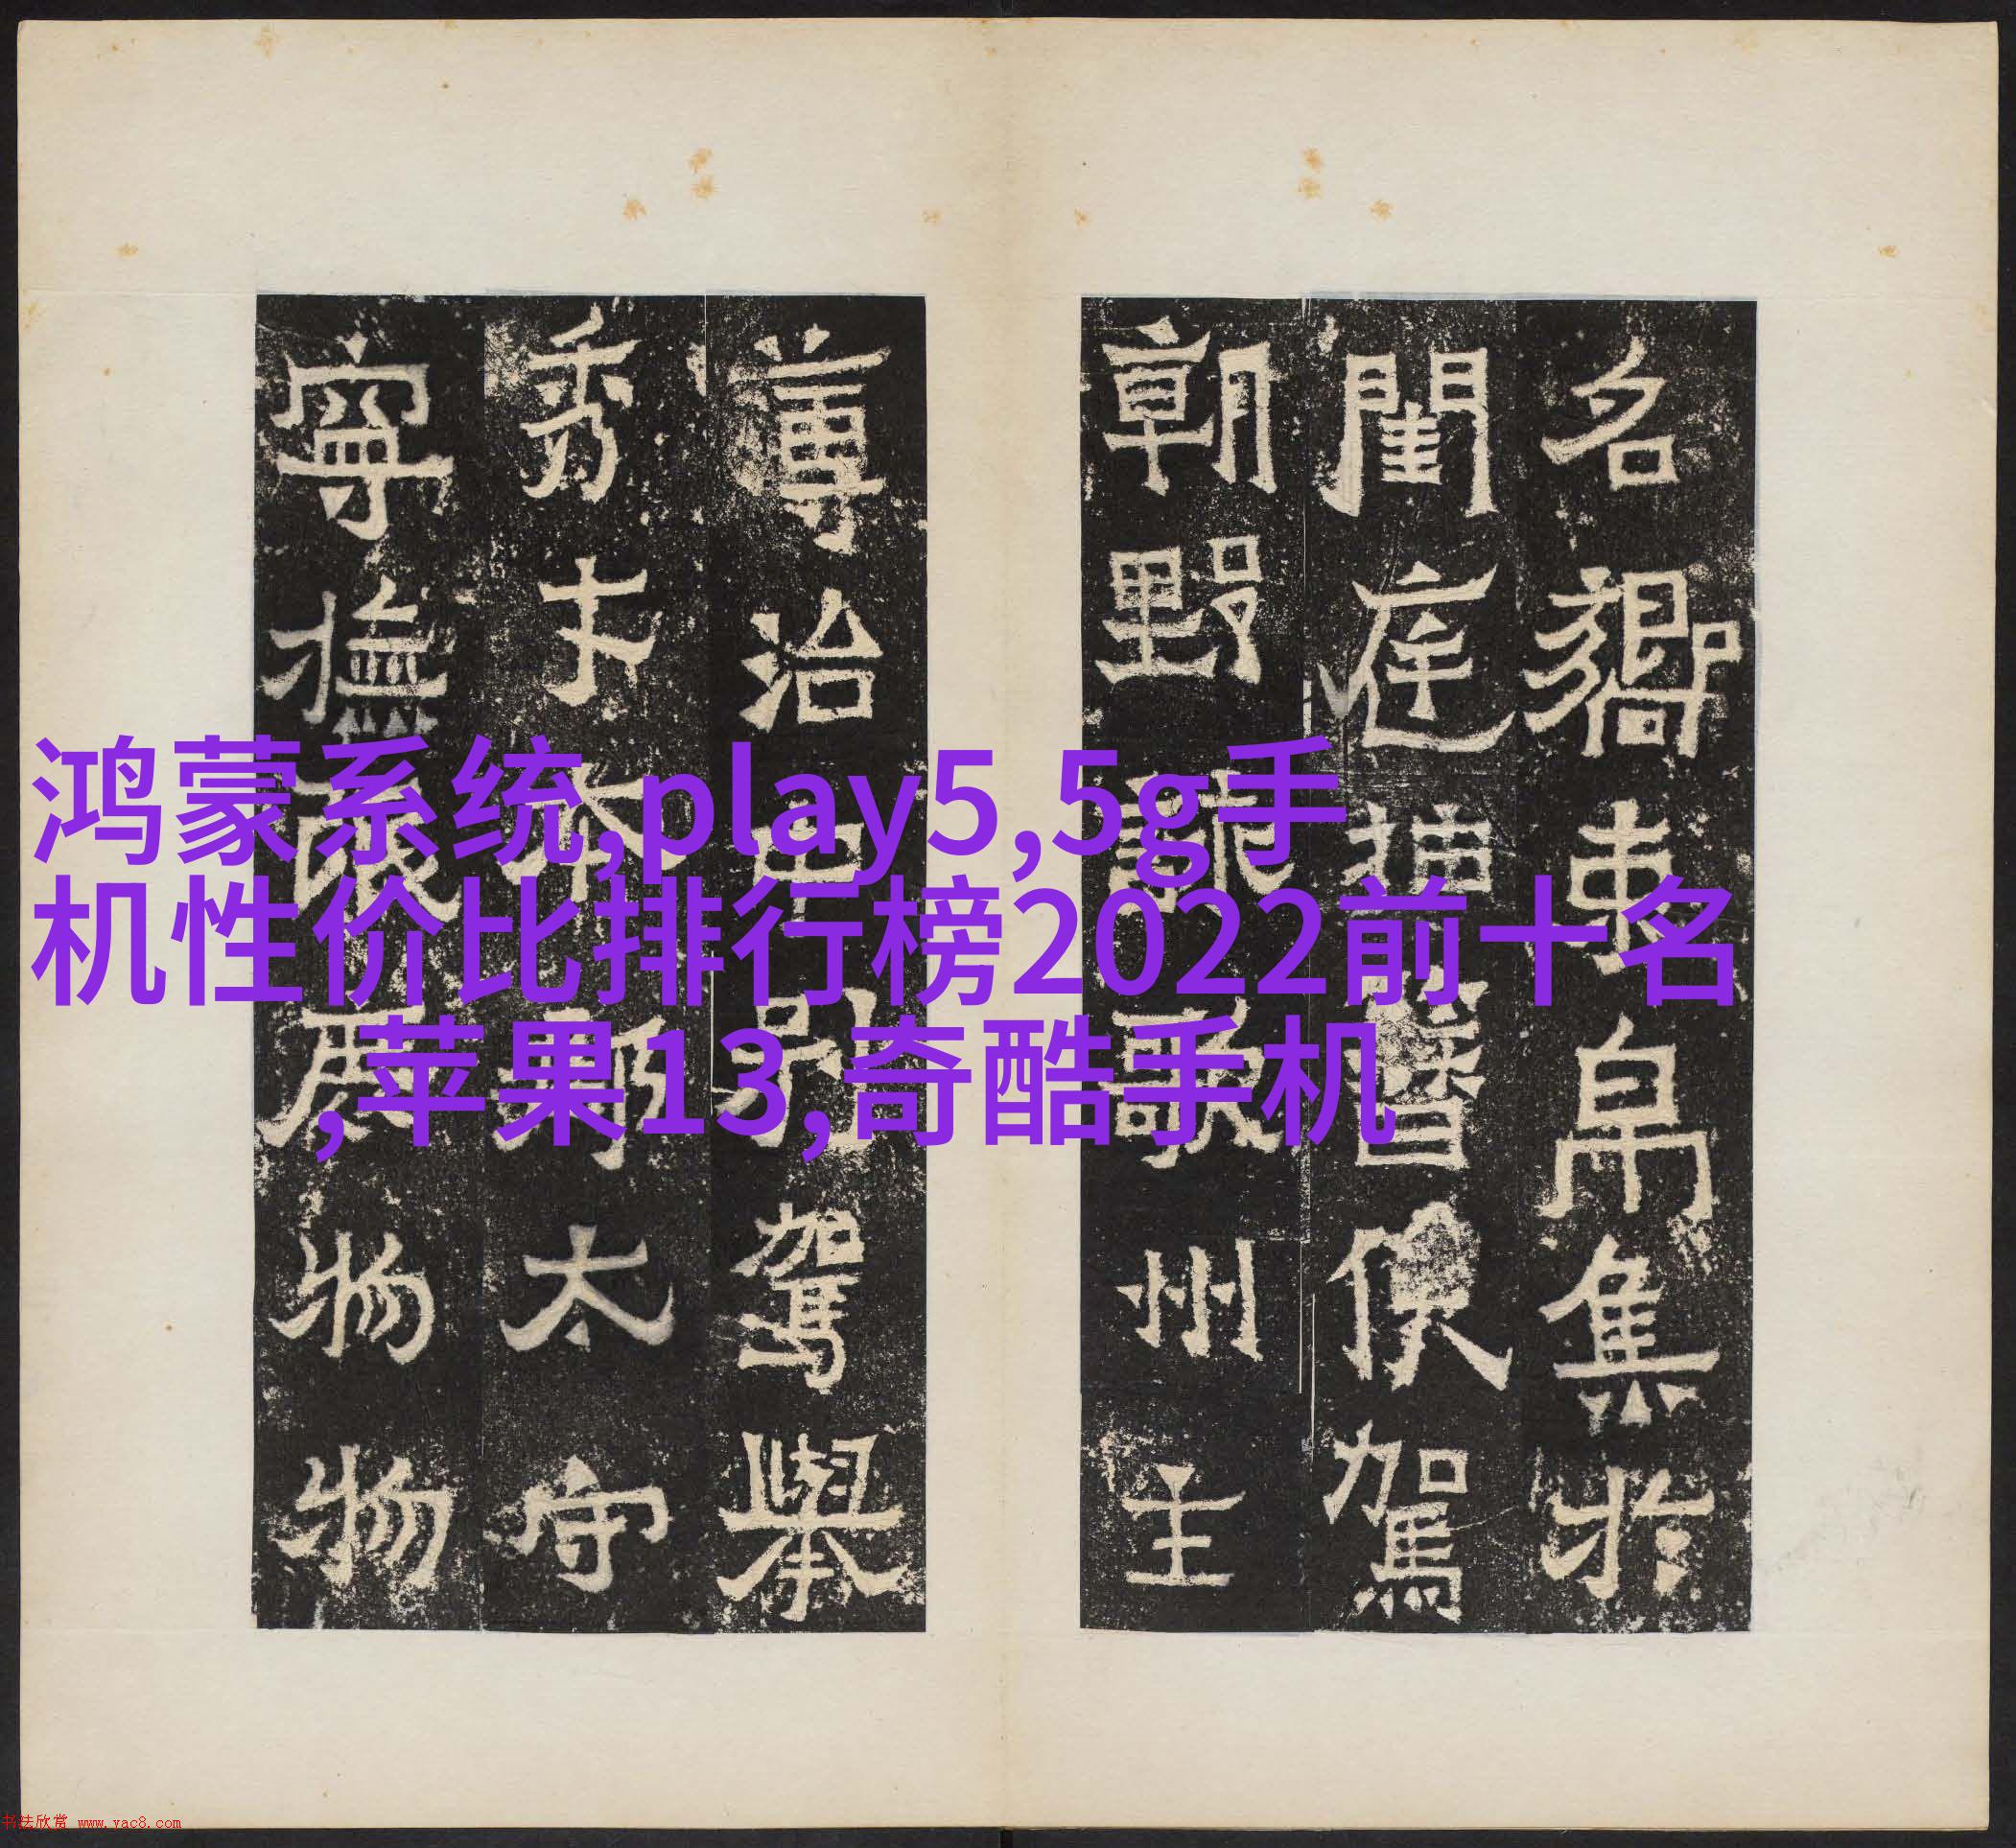 鸿蒙系统,play5,5g手
机性价比排行榜2022前十名
,苹果13,奇酷手机
名卿束帛集於
閨庭抽簪俟駕
朝野詠歌州主
尊治中別駕舉
秀才本郡太守
寧撫物物
书法欣赏 www.yac8.com